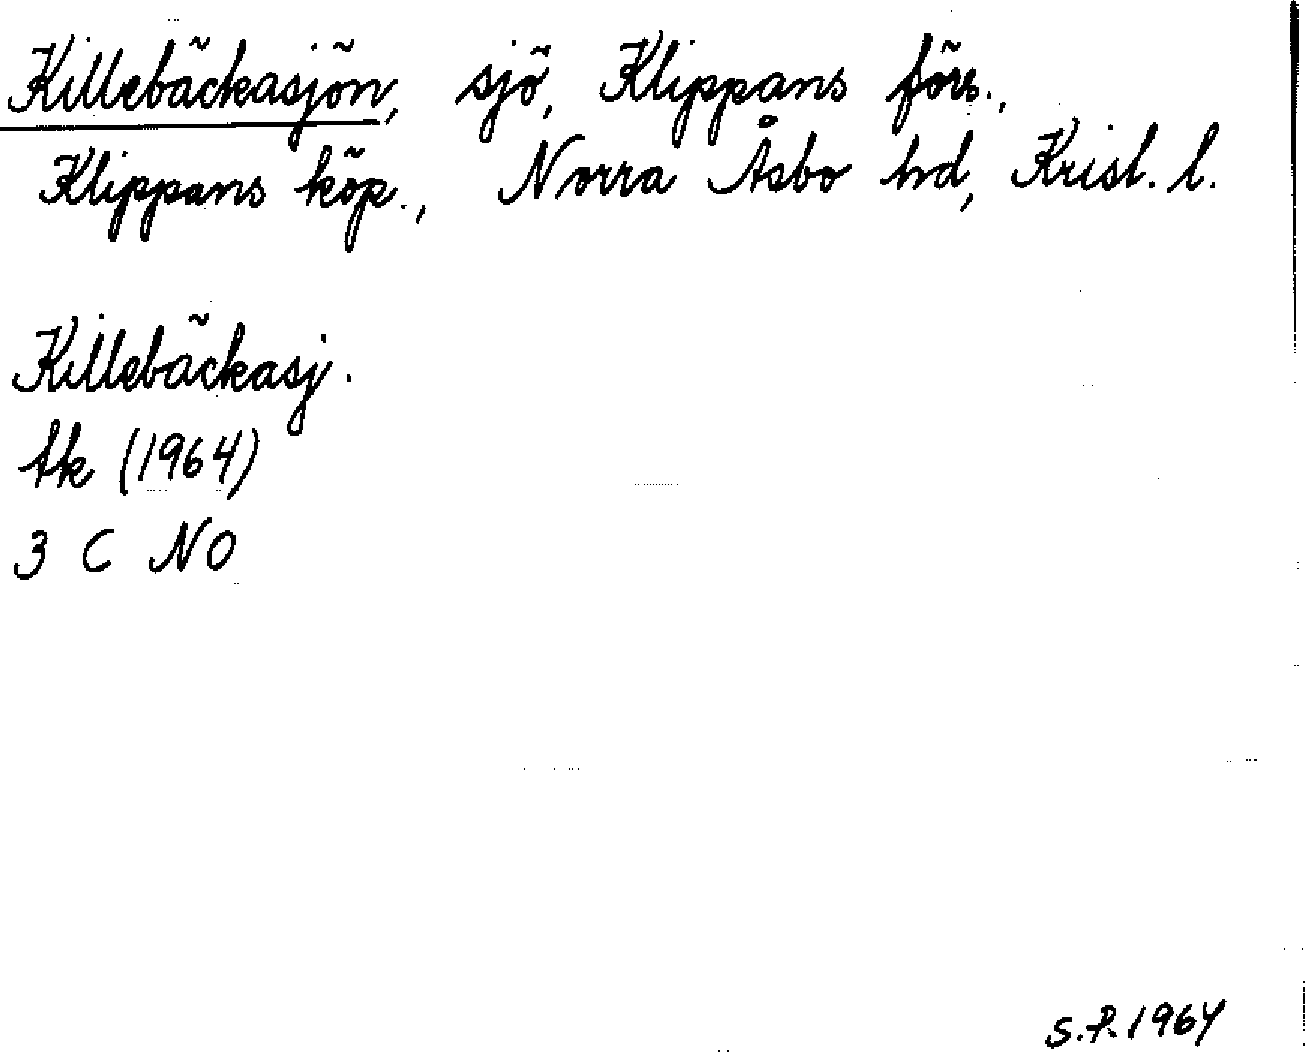 Killebäckasjön, sjö, Klippans förs.,
Klippans köp., Norra Åsbo hd, Krist. l.
Killebäckasj.
tk (1964)
3 C NO
S.P. 1964